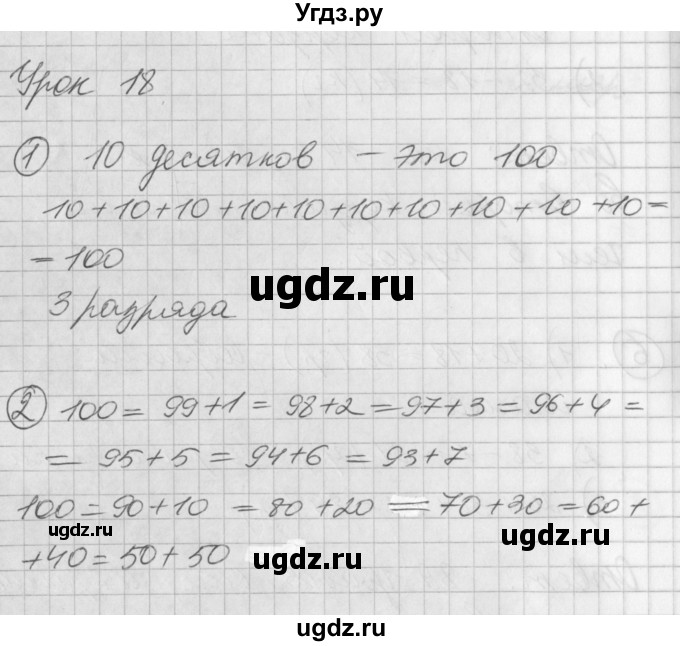 Угдз.ру
Урок 18
1 10 десятков - это 100
10+10+10+10+10+10+10+10+10+10=
=100
ugdz.ru
3 разряда
2 100 = 99+1 = 98+2 = 97+3 = 96+4 =
= 95+5 = 94+6 = 93+7
100=90+10 = 80+20 = 70+30 = 60+
ugdz.ru ugdz.ru
+40=50+50
ugdz.ru
ugdz.ru